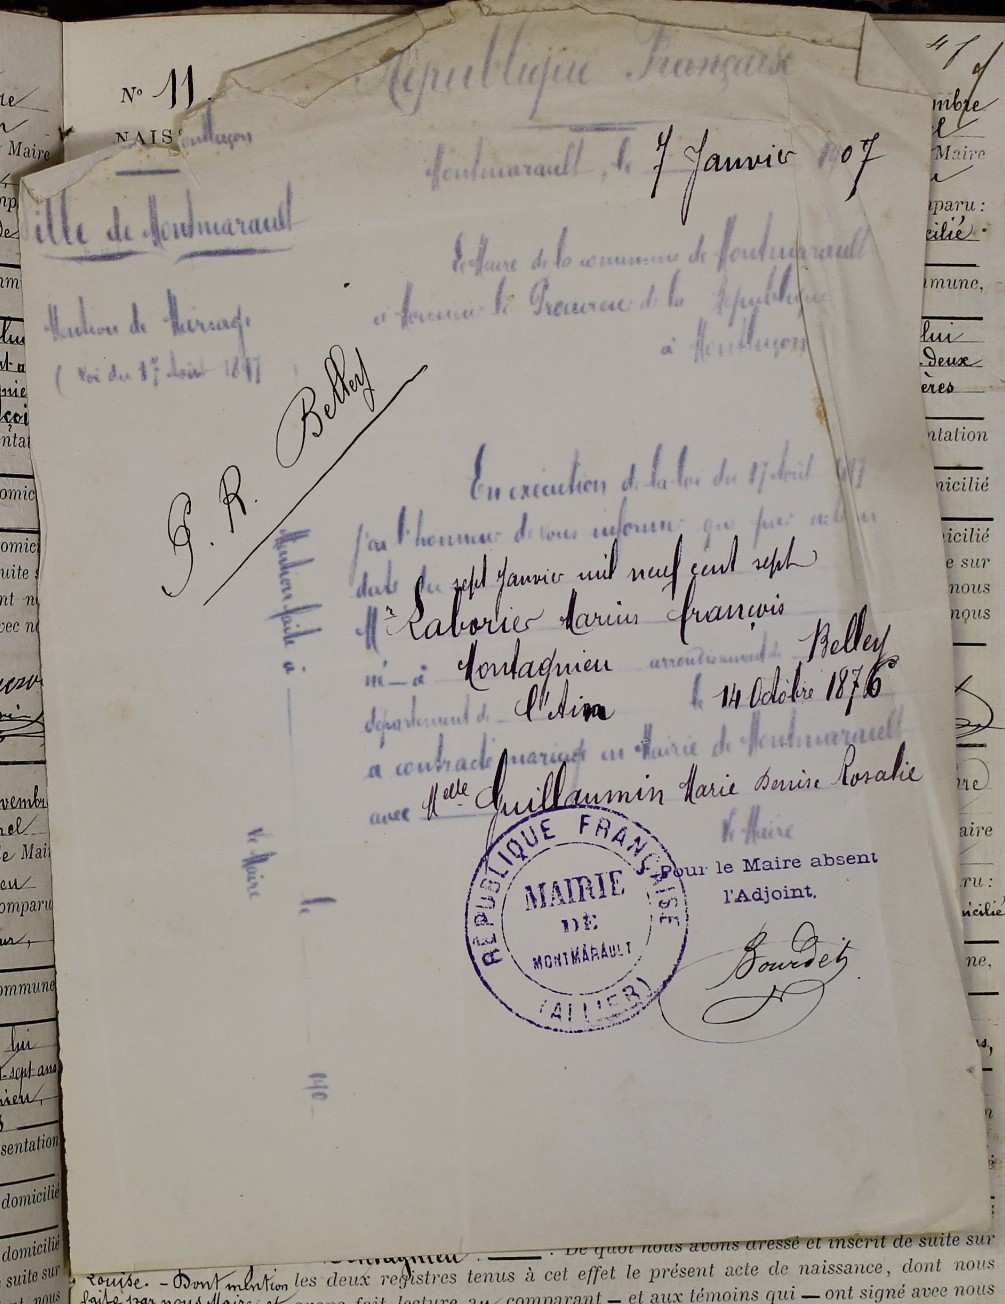 N° 11.
NAIS
République Française
Montluçon
Montmarault, le 7 Janvier 1907
Ville de Montmarault
Le Maire de la commune de Montmarault
à Monsieur le Procureur de la République
à Montluçon
Mention de Mariage
(Loi du 17 Août 1897
P. R. Belley
En exécution de la loi du 17 Août 1897
j'ai l'honneur de vous informer que par acte en
date du sept Janvier mil neuf cent sept
Mr Laborier Marius François
né à Montagnieu arrondissement de Belley
département de l'Ain le 14 Octobre 1876
a contracté mariage en Mairie de Montmarault
avec Melle Guillaumin Marie Denise Rosalie
Mention faite à
le
190
Le Maire
Le Maire
Pour le Maire absent
l'Adjoint,
Bourdet
RÉPUBLIQUE FRANÇAISE
MAIRIE
DE
MONTMARAULT
(ALLIER)
Maire
omparu
commune
lui
sept ans
sentation
domicilié
domicilié
suite sur
nous
mbre
Maire
mparu :
cilié
mmune,
lui
deux
ères
ntation
micilié
icilié
e sur
nous
nous
aire
ru :
icilié
ne,
Montagnieu. — De quoi nous avons dressé et inscrit de suite sur
Louise. — Dont mention les deux registres tenus à cet effet le présent acte de naissance, dont nous
faite par nous Maire et avons fait lecture au comparant — et aux témoins qui — ont signé avec nous